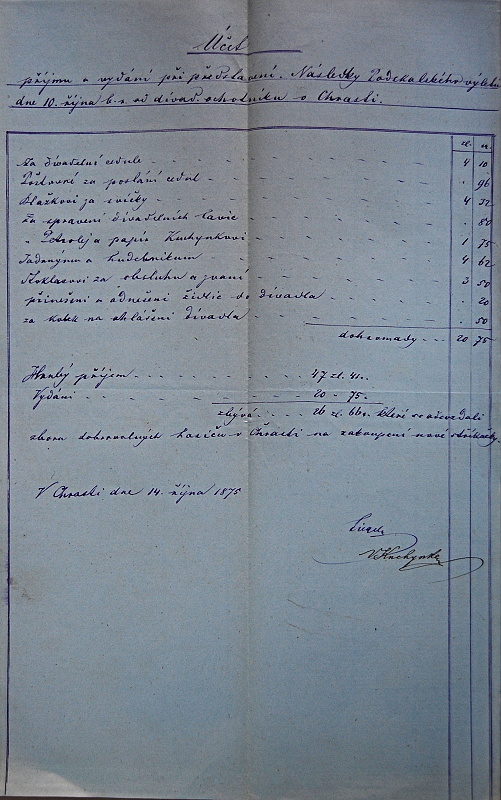 Účet
příjmu a vydání při představení. Následky Podskalského výletu
dne 10. října b. r. od divad. ochotníků v Chrasti.
zl. kr.
Za divadelní cedule - - - 4 10
Poštovní za poslání cedul - - - . 96
Blažkovi za svíčky - - - 4 32
Za spravení divadelních lavic - - - . 80
" Petrolej a papír Kuchynkovi - - - 1 75
Tadranýmu a hudebníkum - - - 4 62
za obsluhu a zvaní - - - 3 50
přinešení a odnešení židlic do divadla - - - . 20
za kolek na ohlášení divadla - - - . 50
dohromady - - - 20 75
Hrubý příjem - - - 47 zl. 41 kr.
Vydání - - - 20 - 75 -
zbývá - - - 26 zl. 66 kr. které se odevzdali
sboru dobrovolných hasičů v Chrasti na zakoupení nové stříkačky.
V Chrasti dne 14. října 1875
VKuchynka